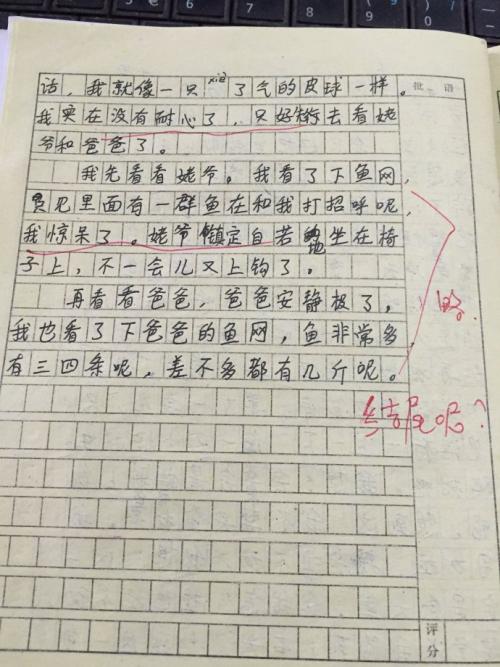 批 语
话，我就像一只xiè了气的皮球一样。
我实在没有耐心了，只好去看姥
爷和爸爸了。
我先看看姥爷。我看了下鱼网，
只见里面有一群鱼在和我打招呼呢，
我惊呆了。姥爷镇定自若地坐在椅
子上，不一会儿又上钩了。
再看看爸爸，爸爸安静极了，
我也看了下爸爸的鱼网，鱼非常多，
有三四条呢，差不多都有几斤呢。
略。
结尾呢？
评分